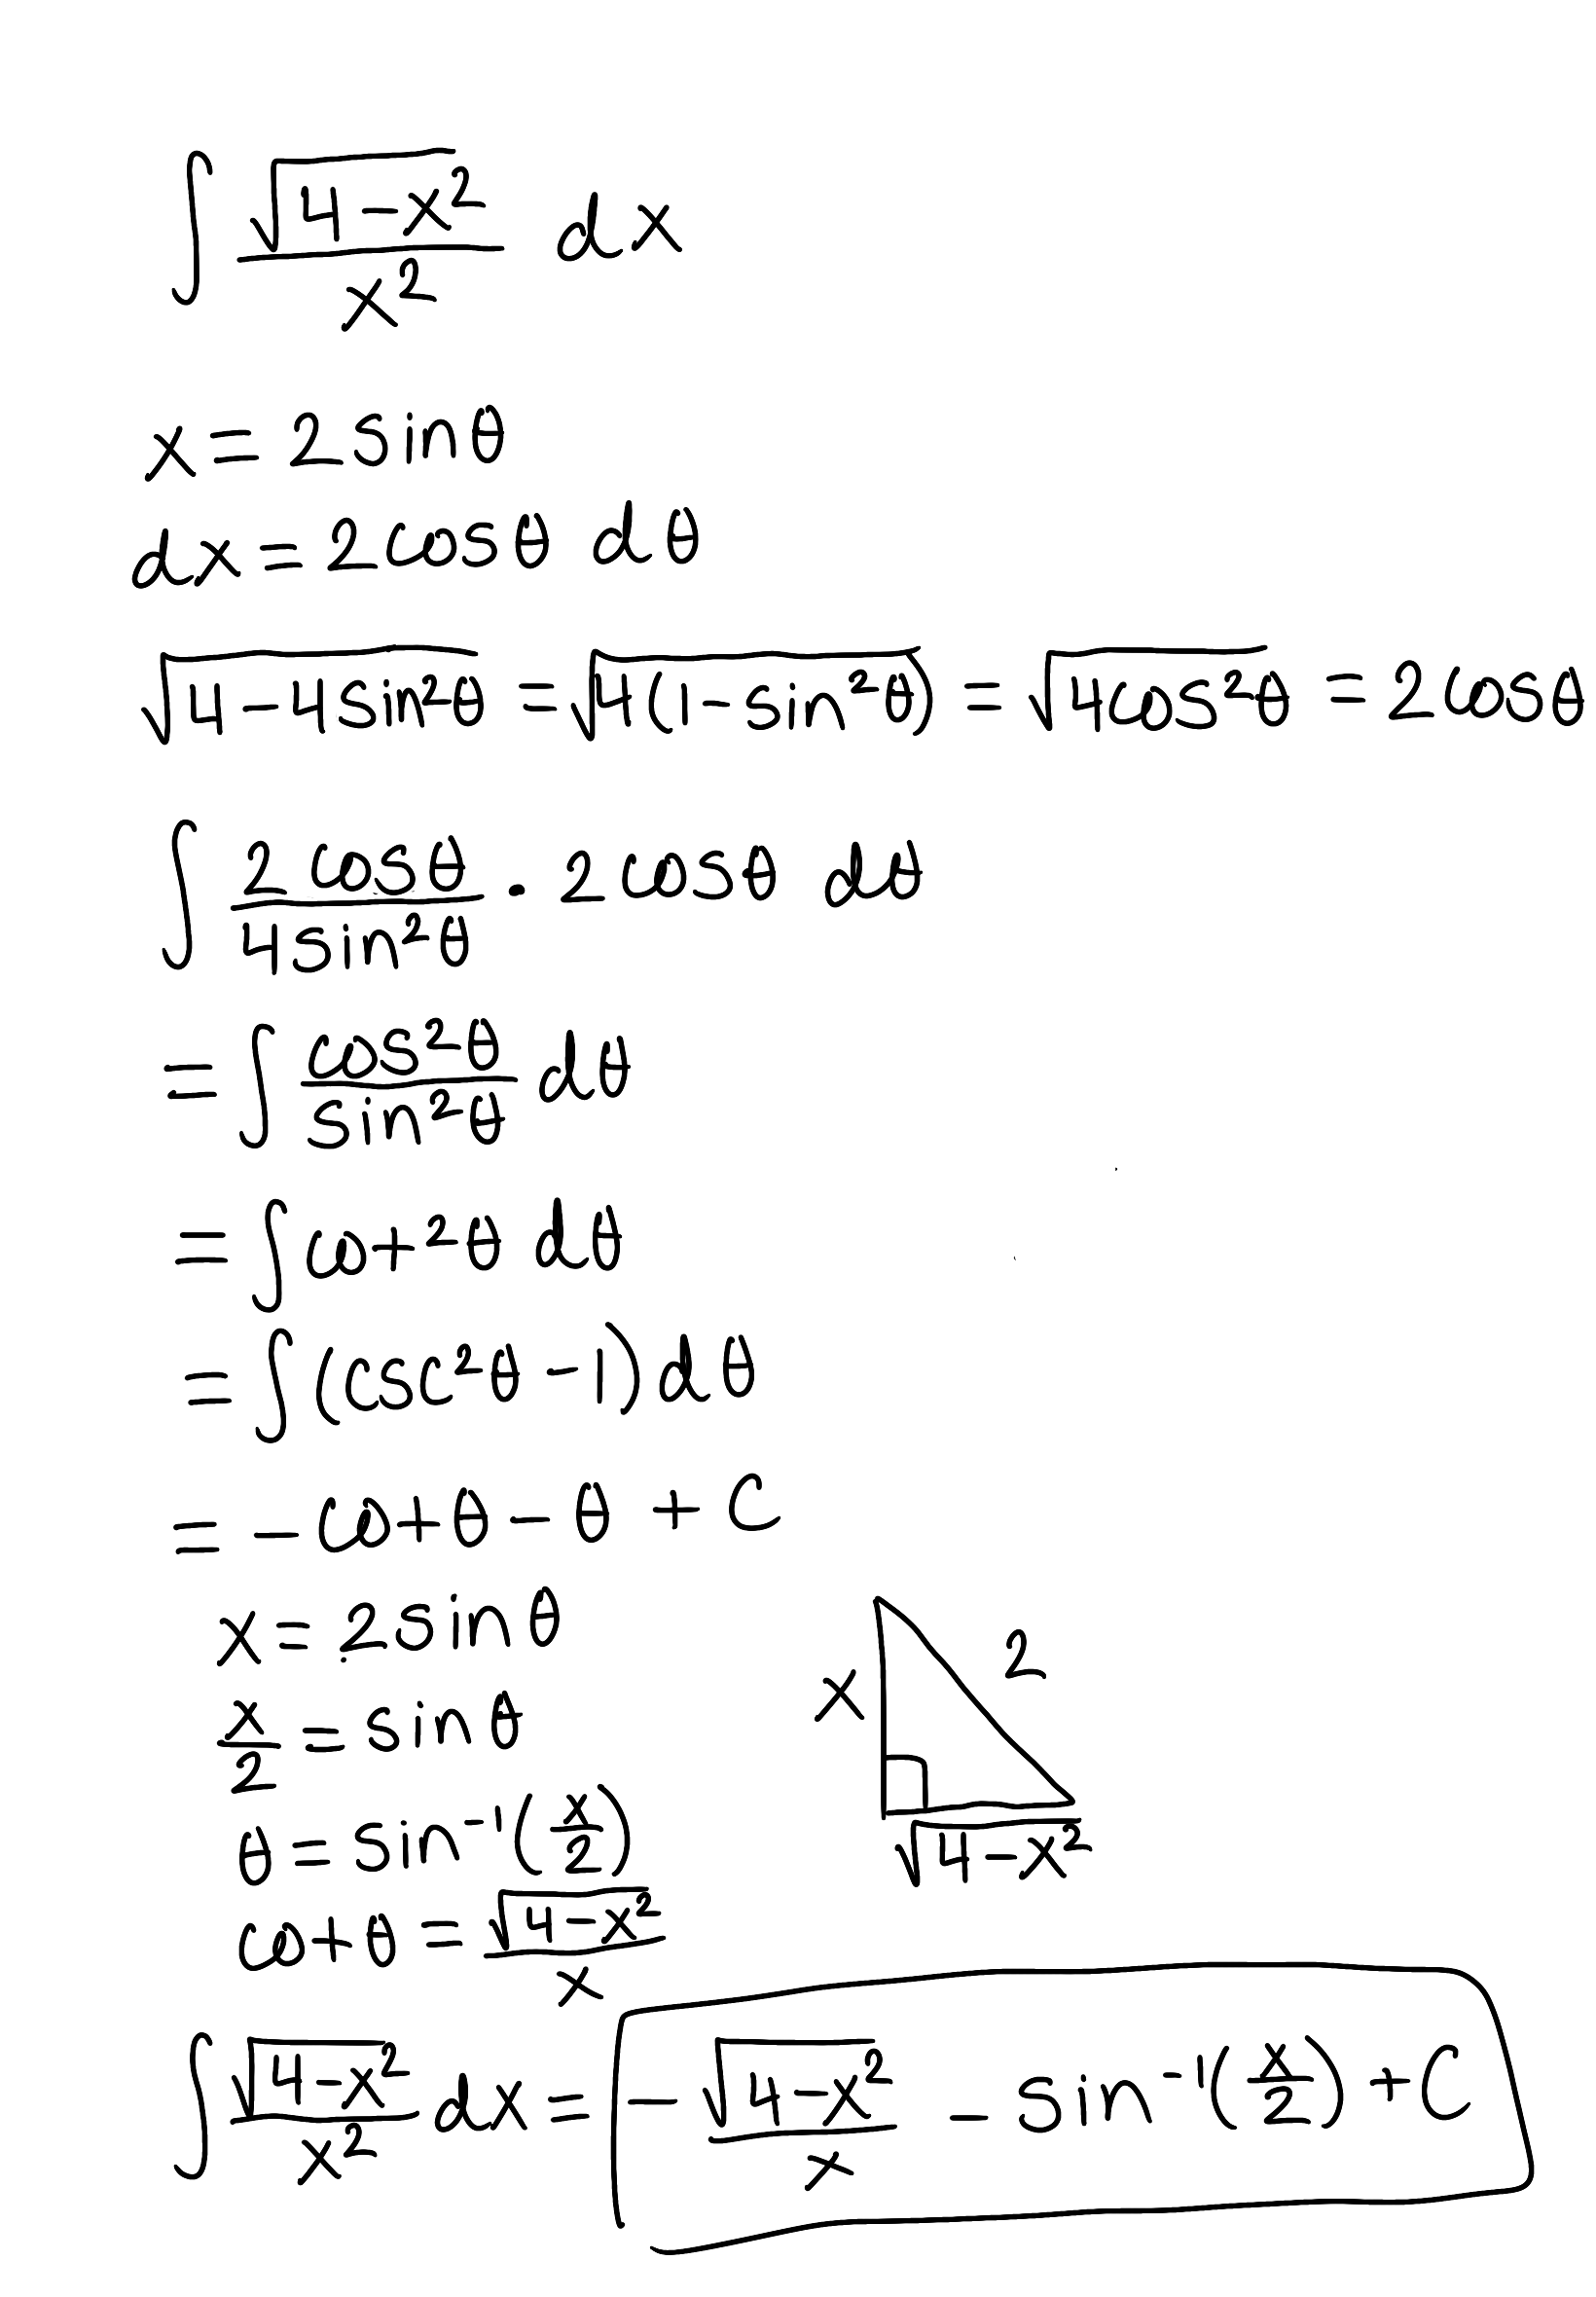 ∫ √(4-x²)/x² dx
x = 2 sinθ
dx = 2 cosθ dθ
√(4-4sin²θ) = √(4(1-sin²θ)) = √(4cos²θ) = 2 cosθ
∫ (2 cosθ)/(4 sin²θ) · 2 cosθ dθ
= ∫ cos²θ/sin²θ dθ
= ∫ cot²θ dθ
= ∫ (csc²θ - 1) dθ
= -cotθ - θ + C
x = 2 sinθ
x/2 = sinθ
θ = sin⁻¹(x/2)
cotθ = √(4-x²)/x
x
2
√(4-x²)
∫ √(4-x²)/x² dx = -√(4-x²)/x - sin⁻¹(x/2) + C